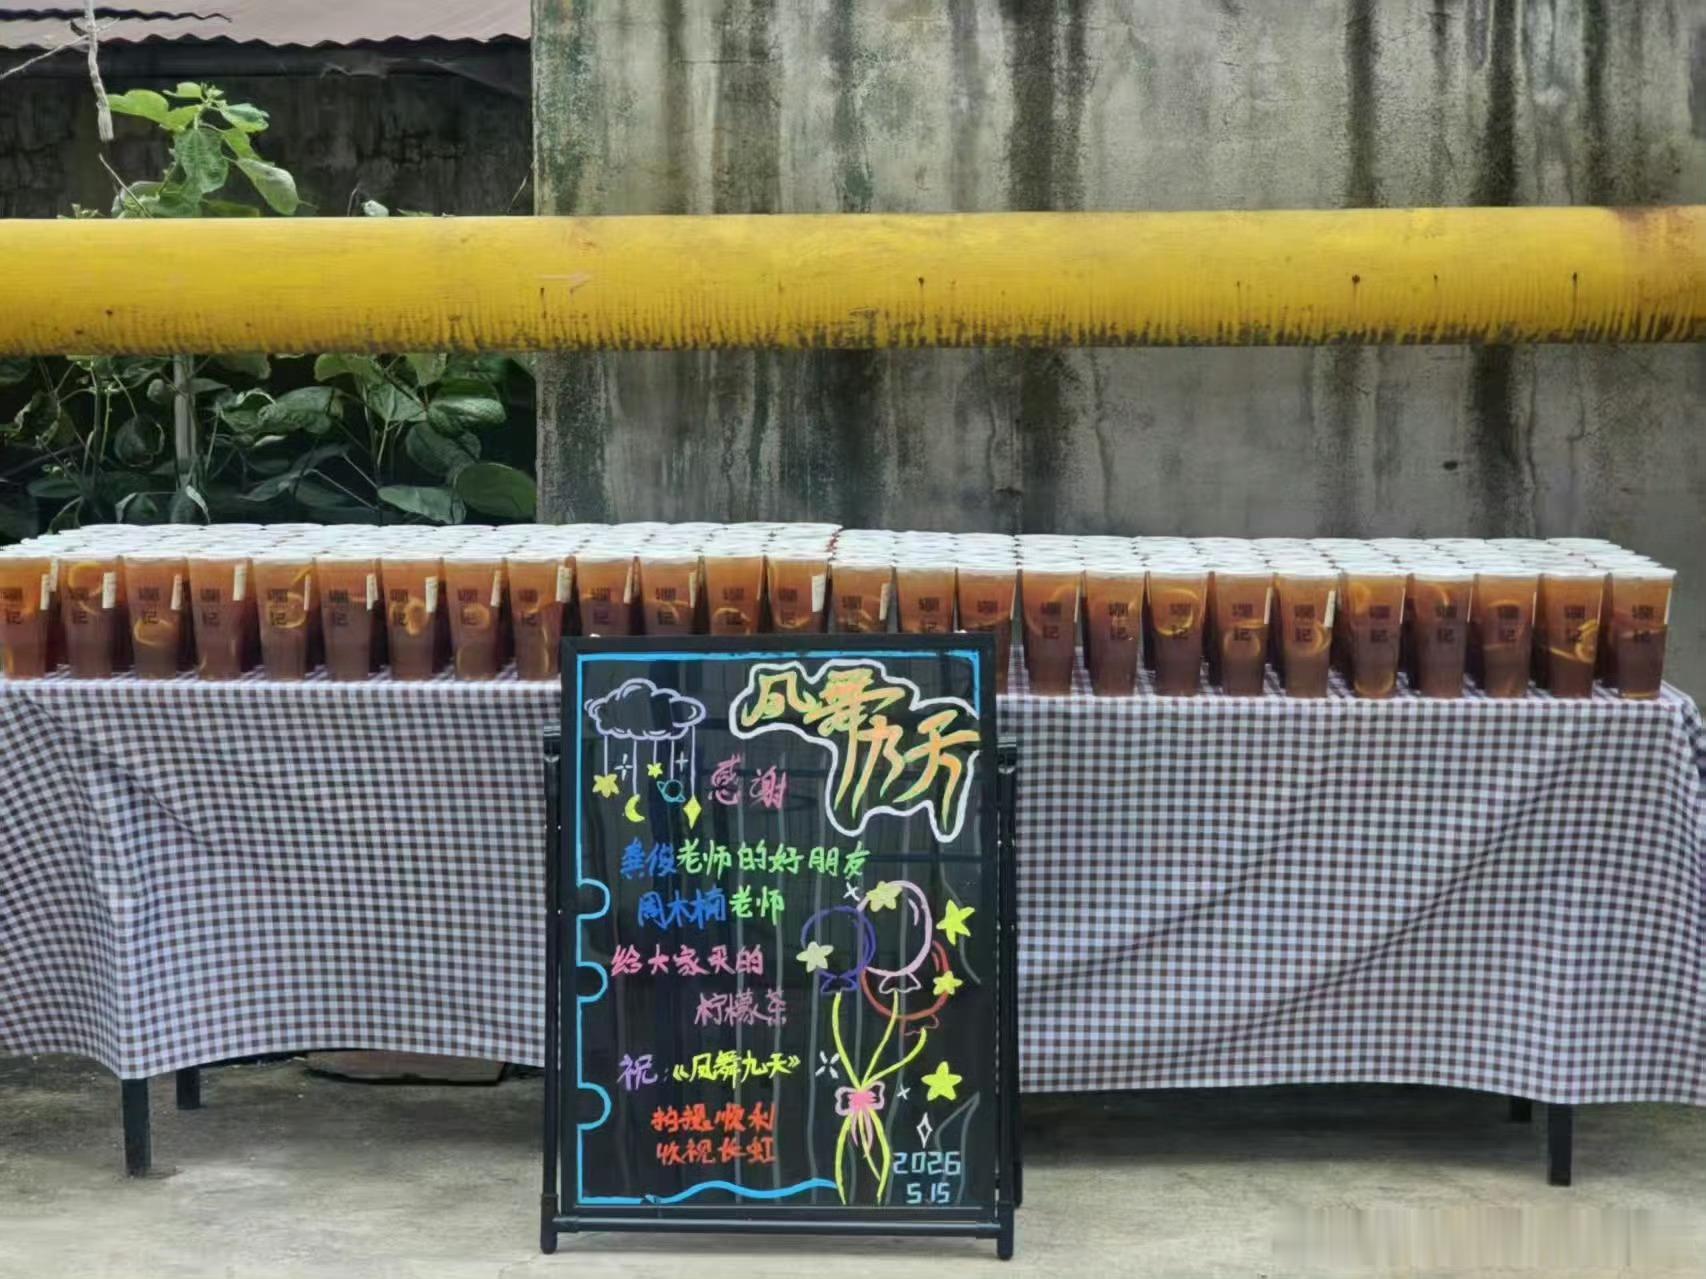 凤舞九天
感谢
龚俊老师的好朋友
周木楠老师
给大家买的
柠檬茶
祝:《凤舞九天》
拍摄顺利
收视长虹
2026
5.15